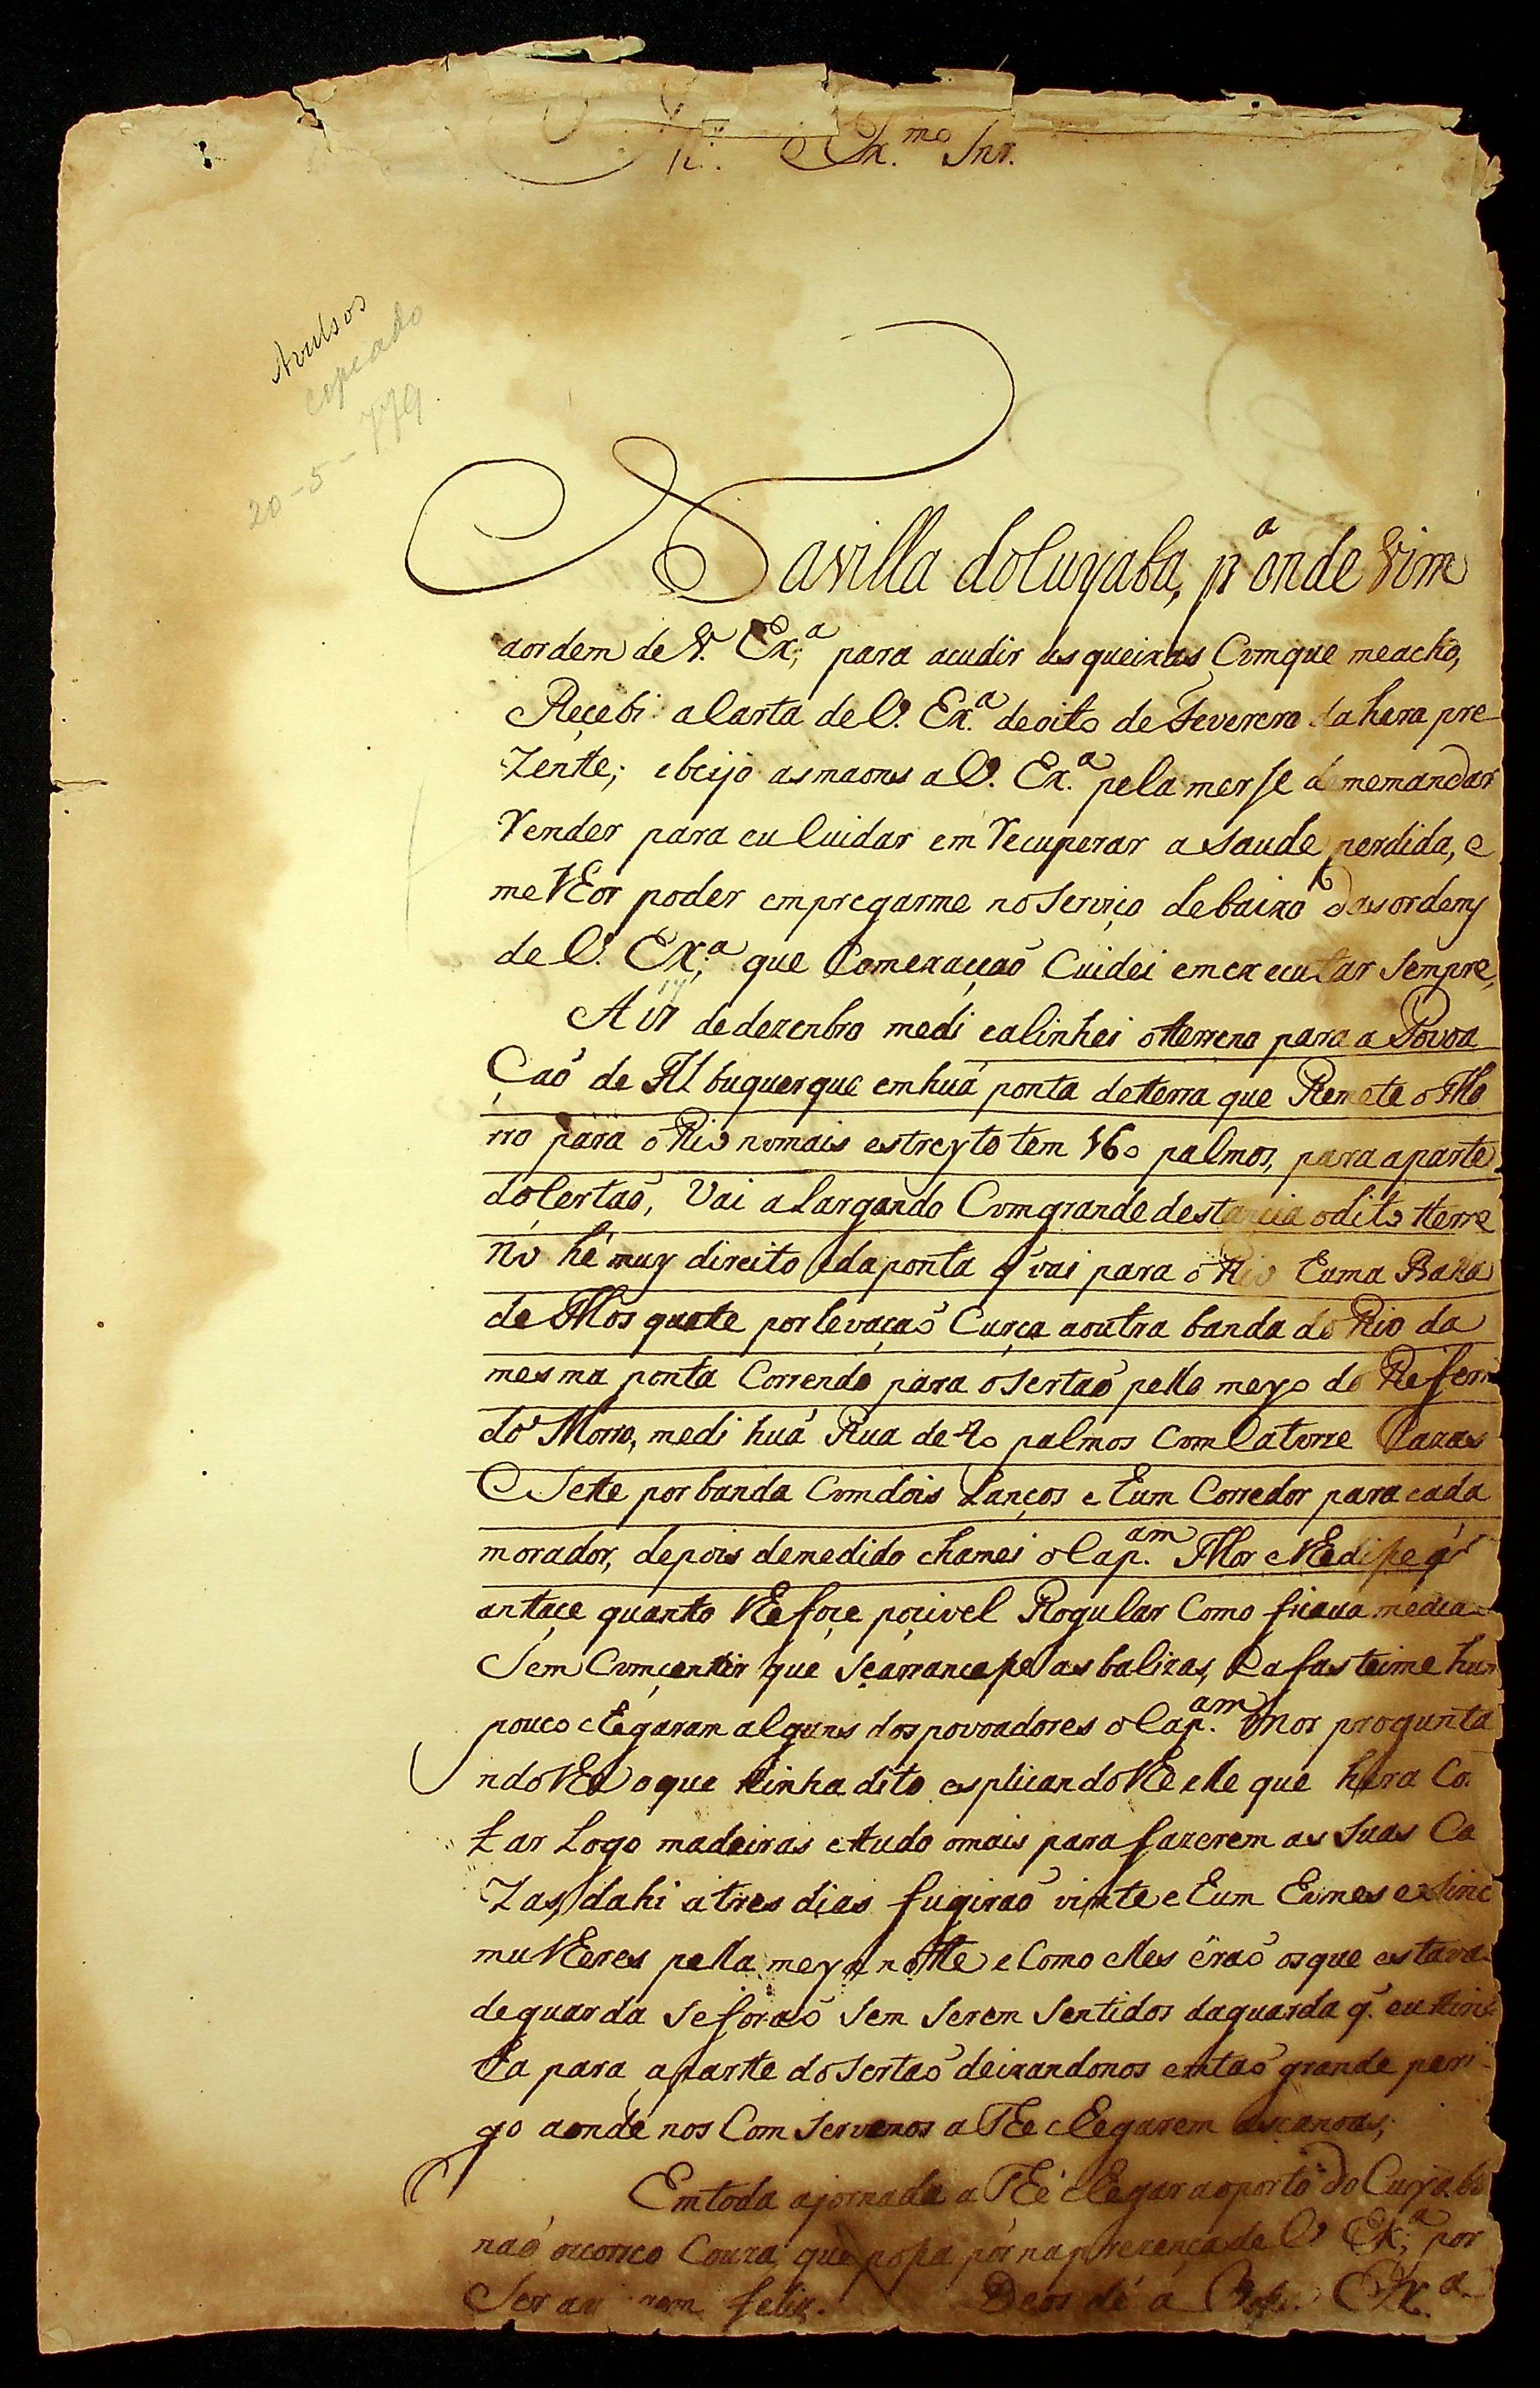 Ex.mo Snr.
Avulsos
copeado
20-5-779
Navilla doCuyaba, pa onde vim
aordem de V. Ex.a para acudir as queixas Comque meacho,
Reçebi a Carta de V. Ex.a de oito de Feverero da hera pre-
zente; ebeijo asmaons a V. Ex.a pela merse de memandar
render para eu Cuidar em recuperar a saude perdida, e
melhor poder empregarme no Serviço debaixo dasordens
de V. Ex.a que Comexacçaõ Cuidei emexecutar Sempre,
A de dezenbro medi ealinhei oterreno para a Povoa
Çaõ de Albuquerque em huá ponta deterra que Remete o Mo
rro para o Rio nomais estreyto tem 160 palmos, para aparte
doCertaõ, Vai alargando Comgrande destancia odito terre
no hé muy direito edaponta q̃ vai para o Rio huma Baxa
de Mosquete por levaçaõ Curça aoutra banda do Rio da
mesma ponta Correndo para osertaõ pello meyo do Referi
do Morro, medi huá Rua de palmos Com Catorze Cazas
Sette por banda Comdois Lanços e hum Corredor para cada
morador, depois demedido chamei oCap.am Mor elhedisse q̃
antaçe quanto lhe foçe poçivel Rogular Como ficava media
Sem Comçentir que Searrancasse as balizas, Eafasteime hum
pouco chegaram alguns dospovoadores oCap.am Mor progunta
ndolhe oque tinha dito esplicandolhe elle que hera Co
rtar Logo madeiras etudo omais para fazerem as Suas Ca
Zas, dahi atres dias fugiraõ vinte e hum homes e Sinc
mulheres pella meya notte e Como elles éraõ osque estava
deguarda Seforaõ Sem Serem Sentidos daguarda q̃. eu tinh
ha para aparte doSertaõ deixandonos emtaõ grande peri-
go aonde nos Com Servemos athe chegarem as canoas;
Emtoda ajornada athé chegar aoporto do Cuyaba
naõ ocorreo Couza que possa pór naprezençade V. Ex.a por
Ser feliz. Deos dé a Ex.a